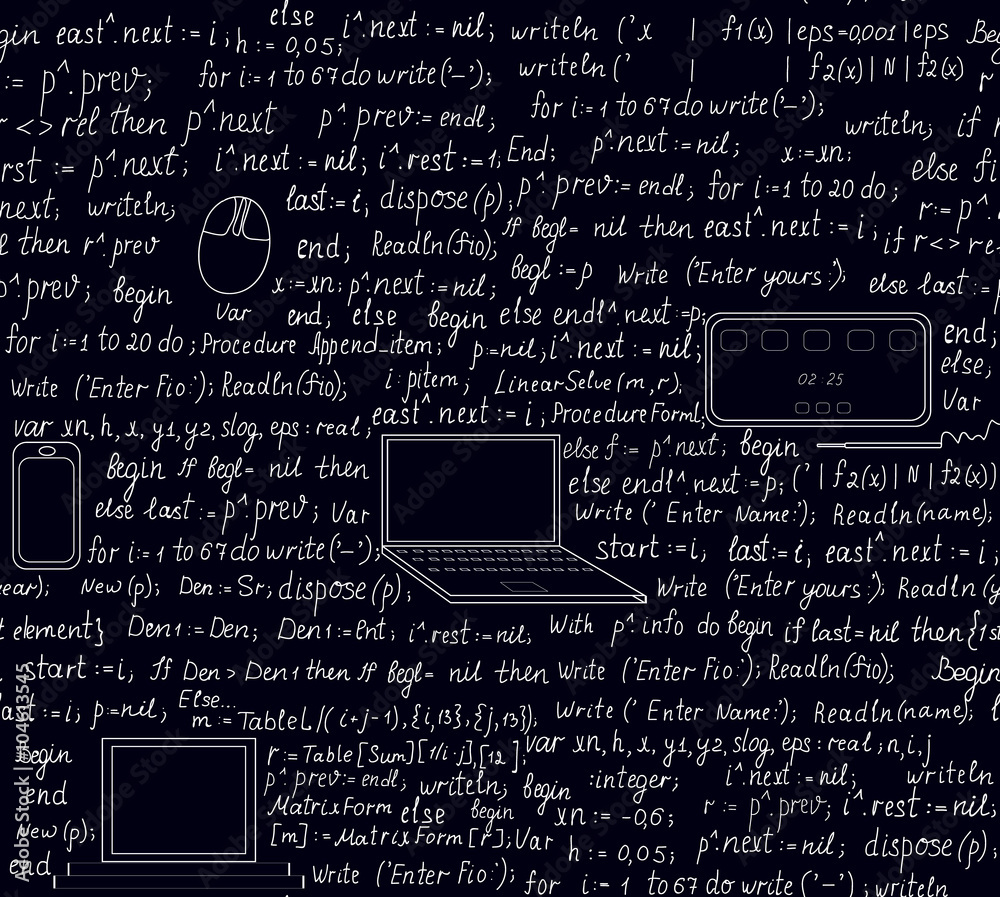 else i^.next := nil; writeln ('x | f1(x) | eps=0,001 | eps
east^.next := i; h := 0,05;
:= p^.prev; for i:=1 to 67 do write('–'); writeln (' | | f2(x) | N | f2(x)
for i:=1 to 67 do write('–');
r <> rel then p^.next p^.prev:= endl; writeln; if
:= p^.next; i^.next := nil; i^.rest := 1; End; p^.next := nil; x:=xn; else
next; writeln; last:= i; dispose(p); p^.prev:= endl; for i:=1 to 20 do; r:= p^.
then r^.prev end; Readln(fio); If begl= nil then east^.next := i; if r<>
p^.prev; begin x:=xn; p^.next := nil; begl:=p Write ('Enter yours:'); else last :=
Var end; else begin else endl^.next :=p;
for i:=1 to 20 do; Procedure Append_item; p=nil; i^.next := nil; end;
02:25
else;
Write ('Enter Fio:'); Readln(fio); i:pitem; LinearSelve(m,r); Var
var xn, h, x, y1, y2, slog, eps: real; east^.next := i; Procedure Forml;
else f:= p^.next; begin
begin If begl= nil then else endl^.next :=p; (' | f2(x) | N | f2(x))
else last:= p^.prev; Var Write (' Enter Name:'); Readln(name);
for i:=1 to 67 do write('–'); start :=i; last:= i; east^.next := i;
New(p); Den:= Sr; dispose(p); Write ('Enter yours:'); Readln
element} Den1:= Den; Den1:= Ent; i^.rest:=nil; With p^.info do begin if last=nil then
start :=i; If Den > Den1 then If begl= nil then Write ('Enter Fio:'); Readln(fio); Begin
:=i; p:=nil; Else...
m := TableL/( i+j-1),{i,13},{j,13}); Write (' Enter Name:'); Readln(name);
begin r:= Table[Sum][1/i:j],[12]; var xn, h, x, y1, y2, slog, eps: real; n, i, j
p^.prev:= endl; writeln; begin :integer; i^.next := nil; writeln
end MatrixForm else begin xn := -0,6; r := p^.prev; i^.rest := nil;
New(p); [m]:= MatrixForm[r]; Var h := 0,05; p^.next := nil; dispose(p);
end Write ('Enter Fio:'); for i:= 1 to 67 do write ('–'); writeln
Adobe Stock | #104613545